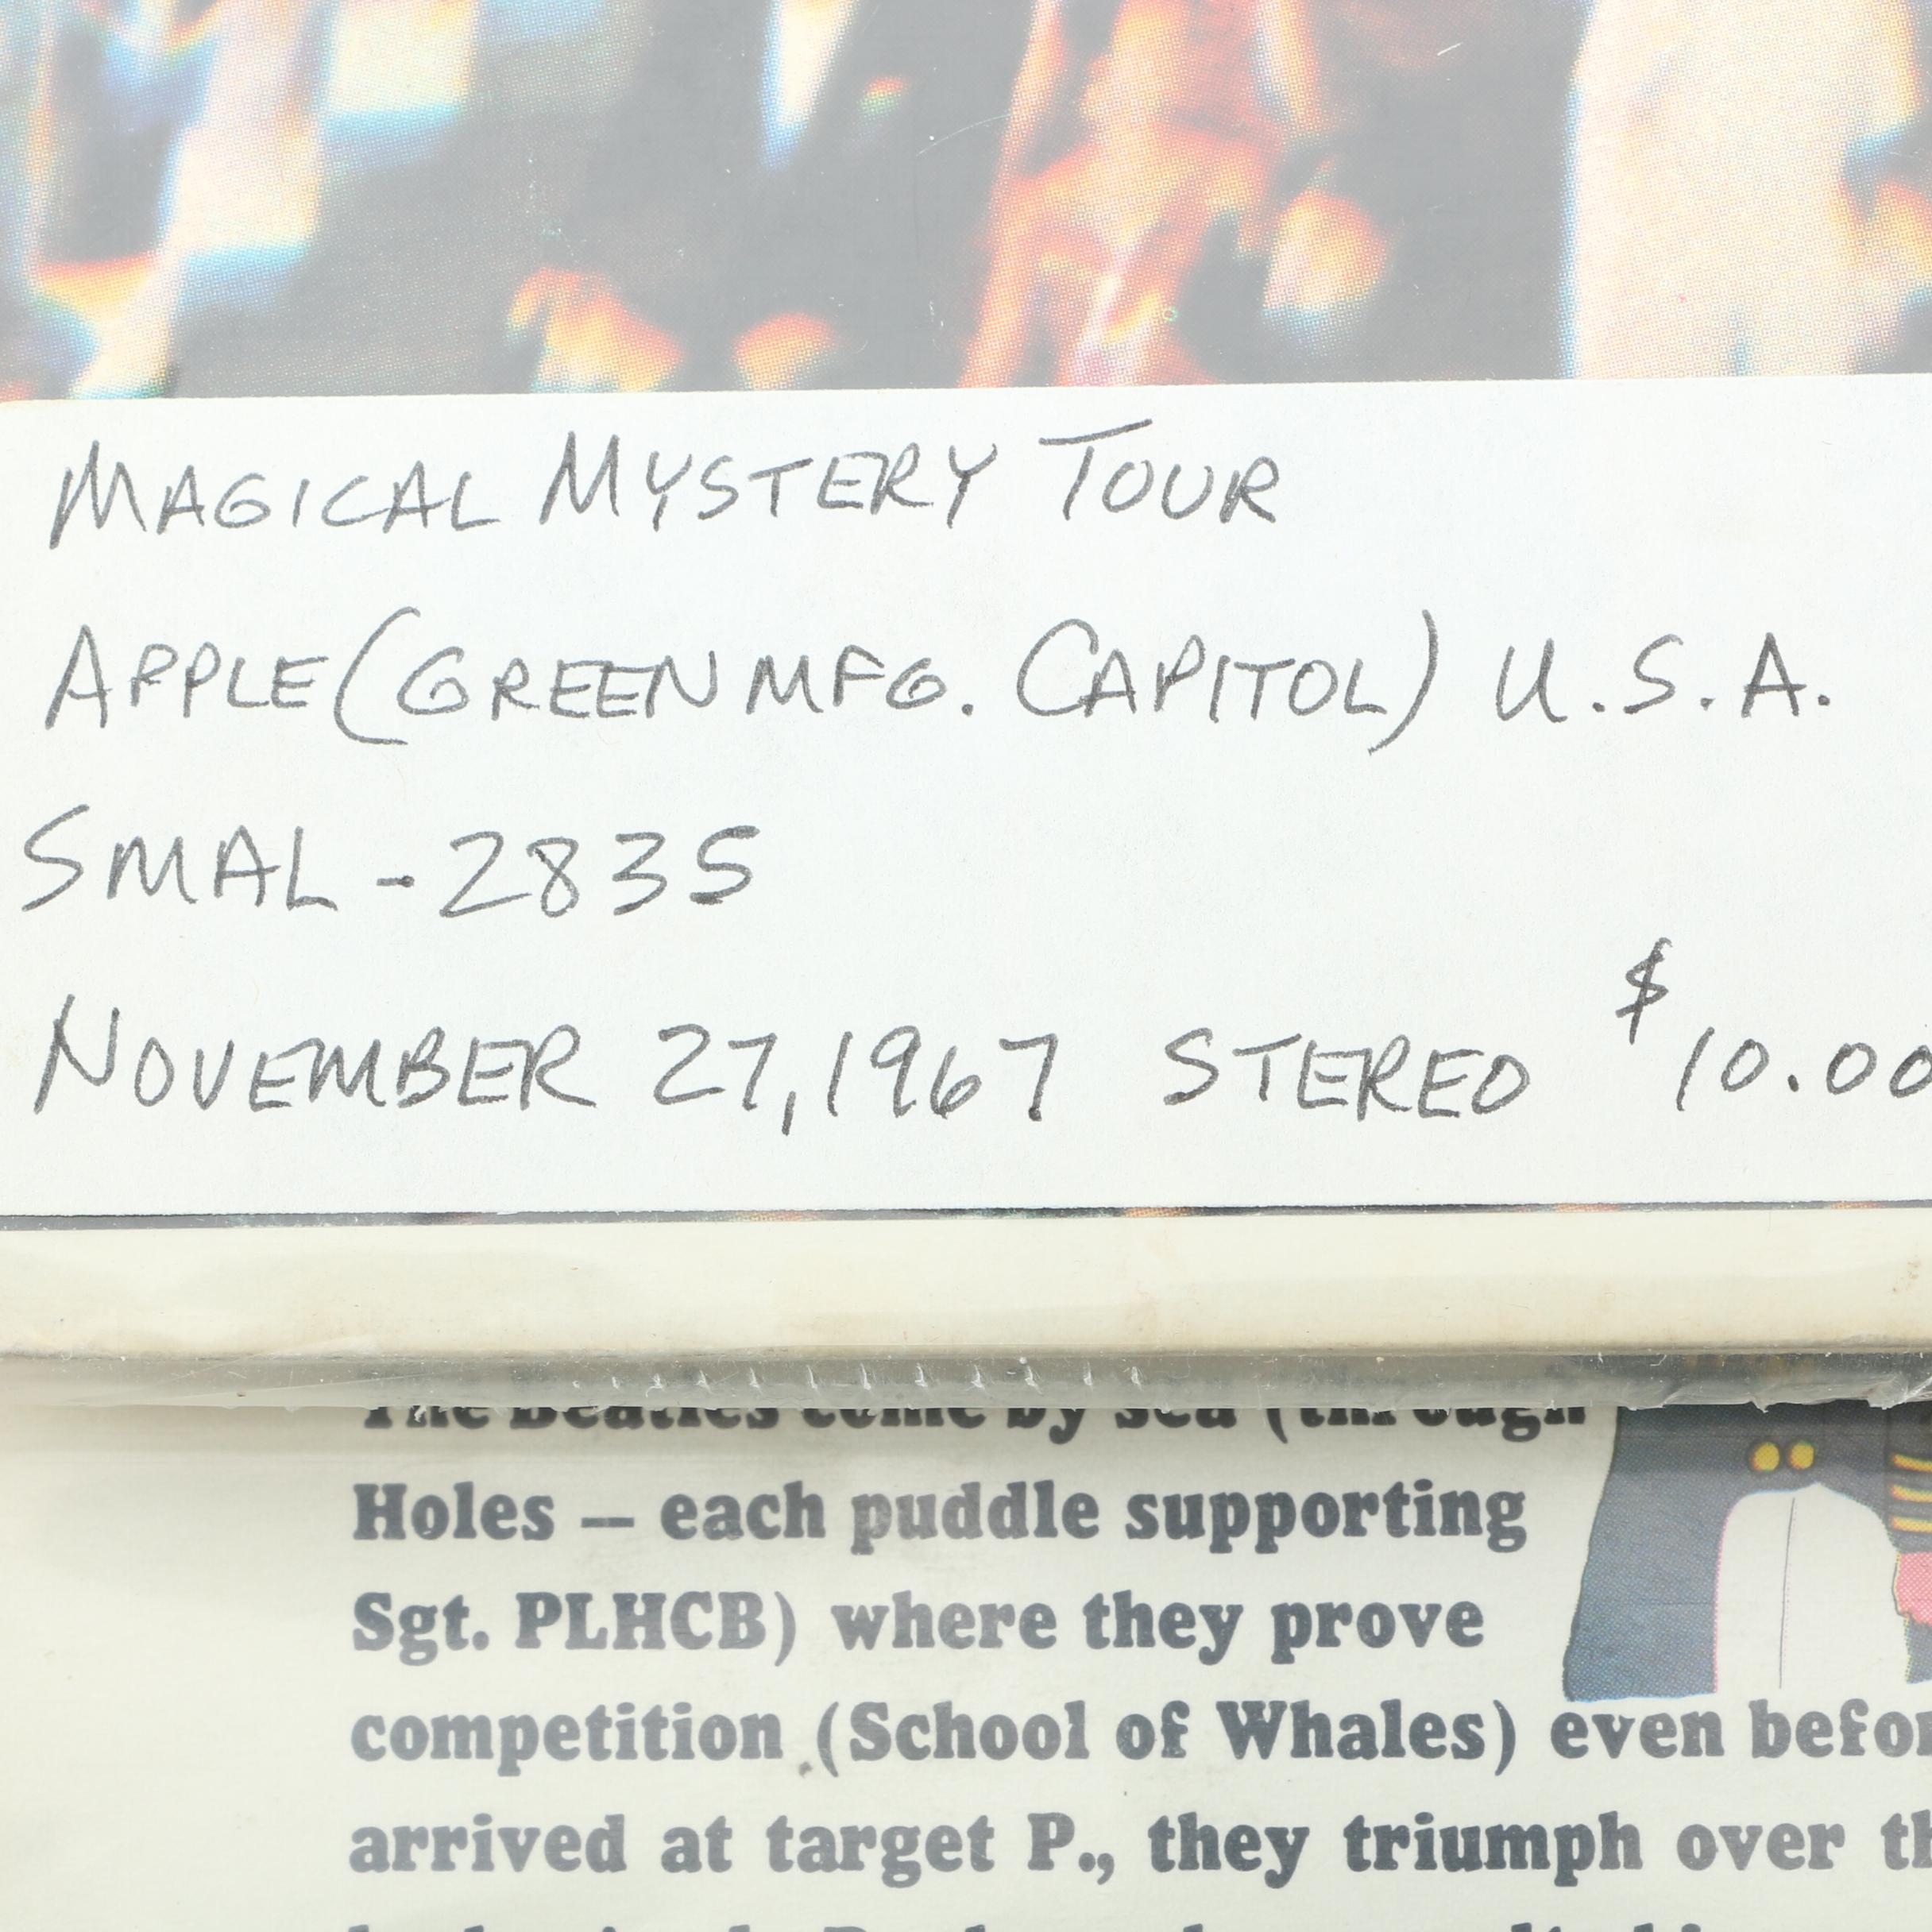 MAGICAL MYSTERY TOUR
APPLE (GREEN MFG. CAPITOL) U.S.A.
SMAL-2835
NOVEMBER 27, 1967 STEREO $10.00
The Beatles come by sea (through
Holes – each puddle supporting
Sgt. PLHCB) where they prove
competition (School of Whales) even
arrived at target P., they triumph over